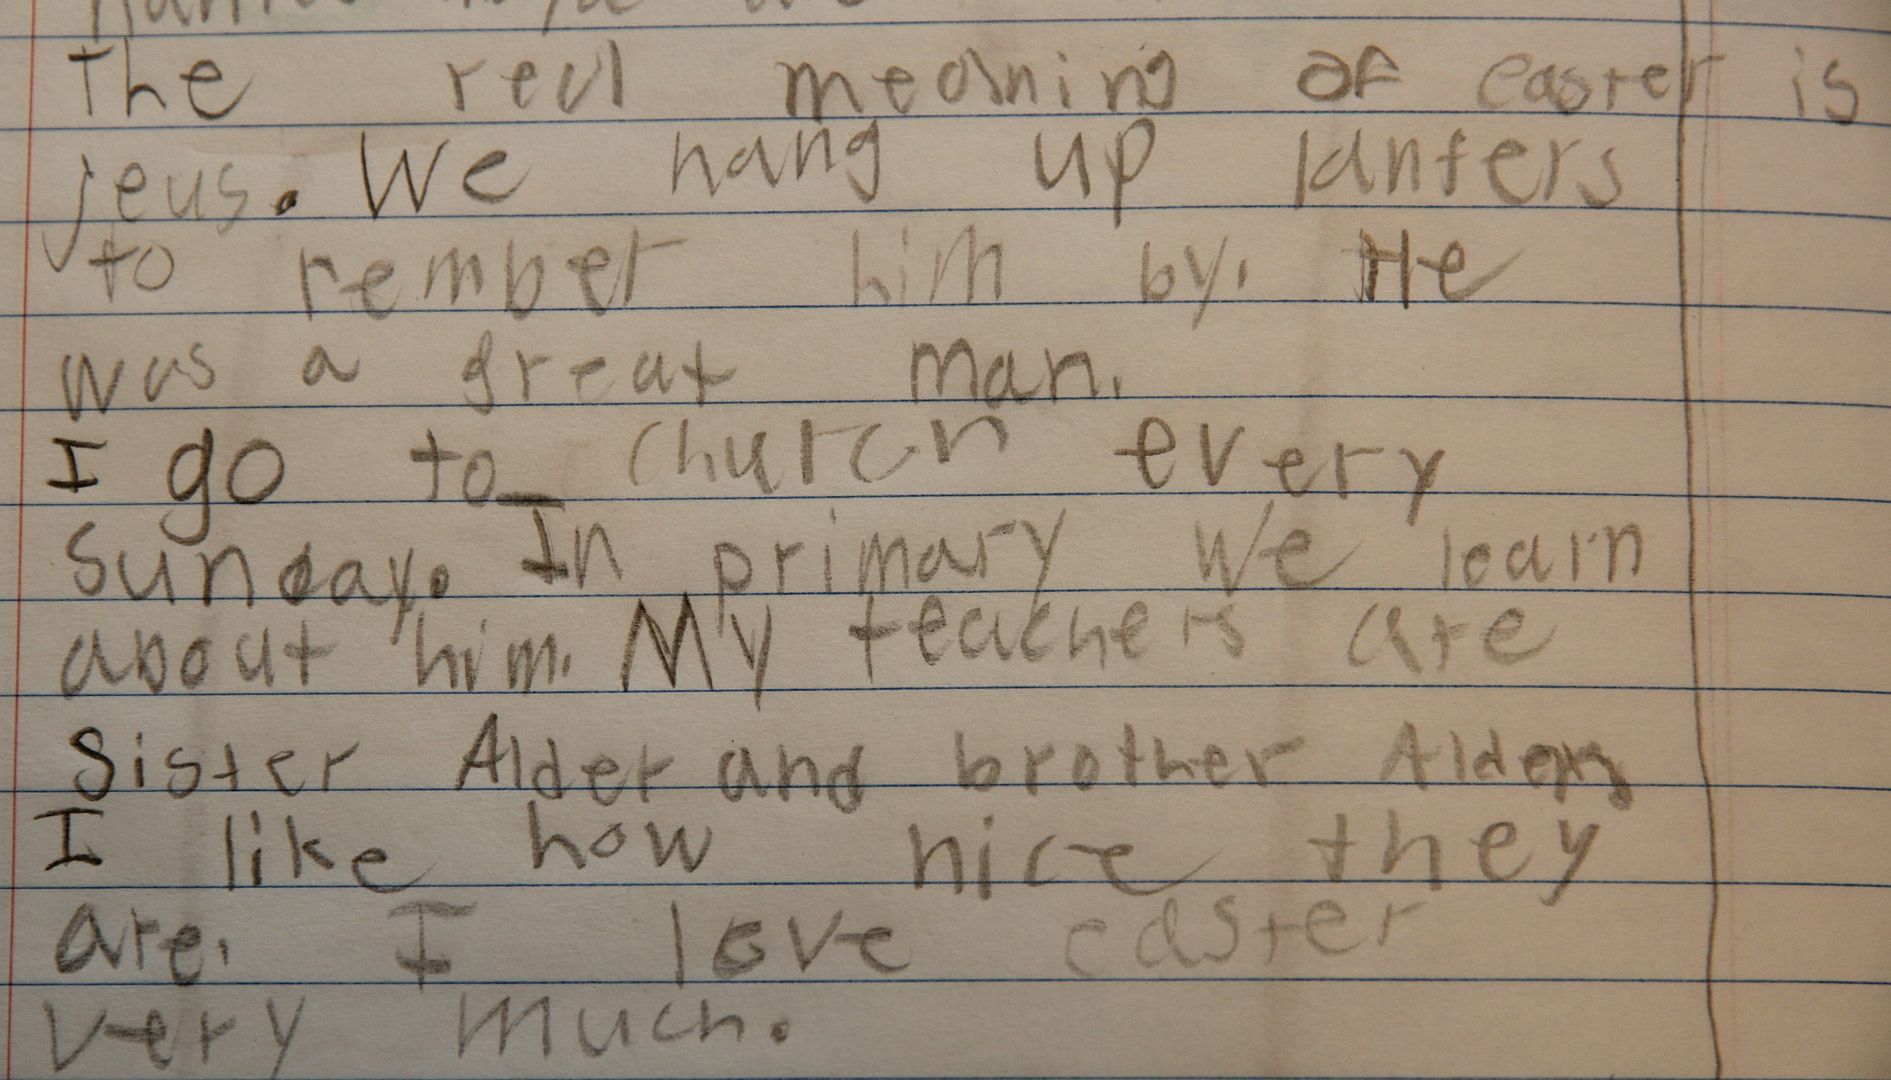 The real meaning of easter is
jeus. We hang up lanters
to rember him by. He
was a great man.
I go to church every
Sunday. In primary We learn
about him. My teachers are
Sister Alder and brother Alder.
I like how nice they
are. I love easter
very much.